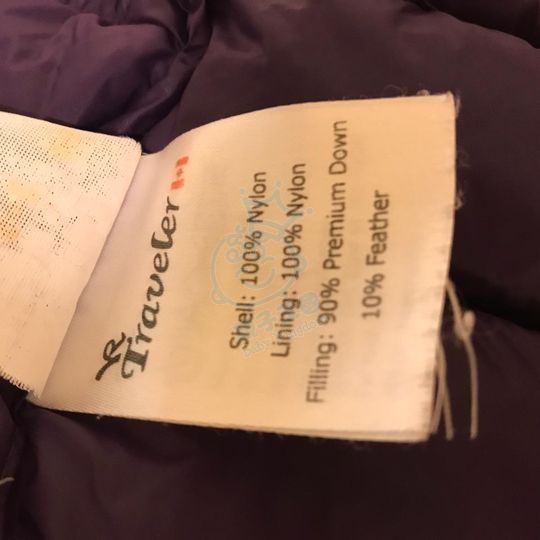 Traveler
Shell: 100% Nylon
Lining: 100% Nylon
Filling: 90% Premium Down
10% Feather